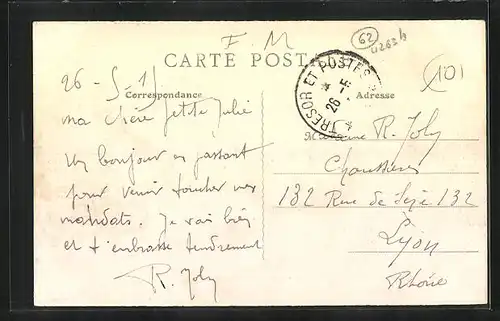 F. M
62
4263 b
101
CARTE POSTALE
Correspondance
Adresse
TRESOR ET POSTES
26 - 5
26 - 5 - 15
ma chère petite Julie
Un bonjour en passant
pour venir toucher mes
mandats. Je vais bien
et t'embrasse tendrement
R. Joly
Madame R. Joly
132 Rue de Sèze 132
Lyon
Rhône